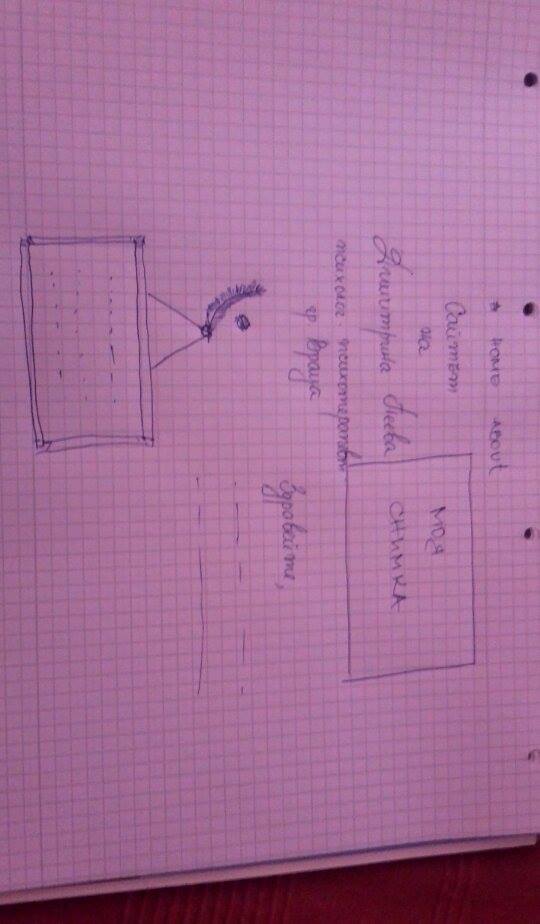 * HOME ABOUT
Сайтът
на
Димитрина Пеева
психолог. психотерапевт
гр Враца
МОЯ
СНИМКА
Здравейте,